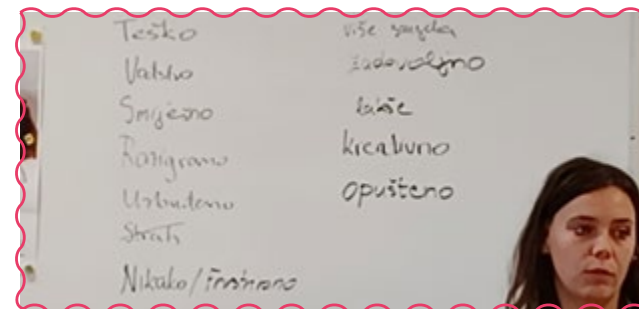 Teško
Važno
Smiješno
Razigrano
Uzbuđeno
Strah
Nikako/
više
zadovoljno
lakše
kreativno
opušteno